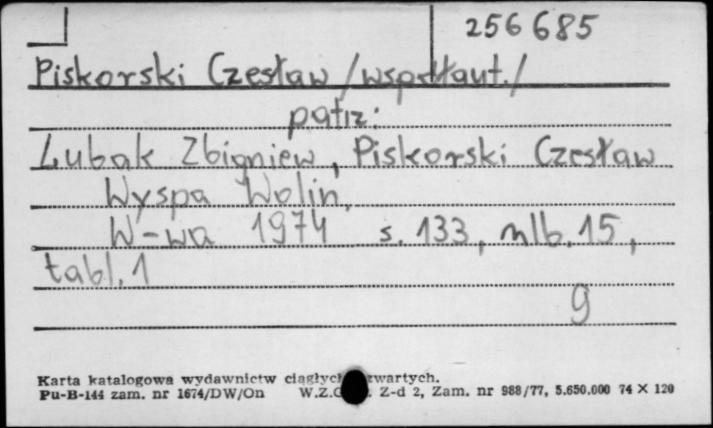 256 685
Piskorski Czesław /współaut./
patrz:
Lubak Zbigniew, Piskorski Czesław
Wyspa Wolin.
W-wa 1974 s. 133, nlb. 15,
tabl. 1
g
Karta katalogowa wydawnictw ciągłych zwartych.
Pu-B-144 zam. nr 1674/DW/On W.Z.G. Z-d 2, Zam. nr 988/77, 5.650.000 74 X 120